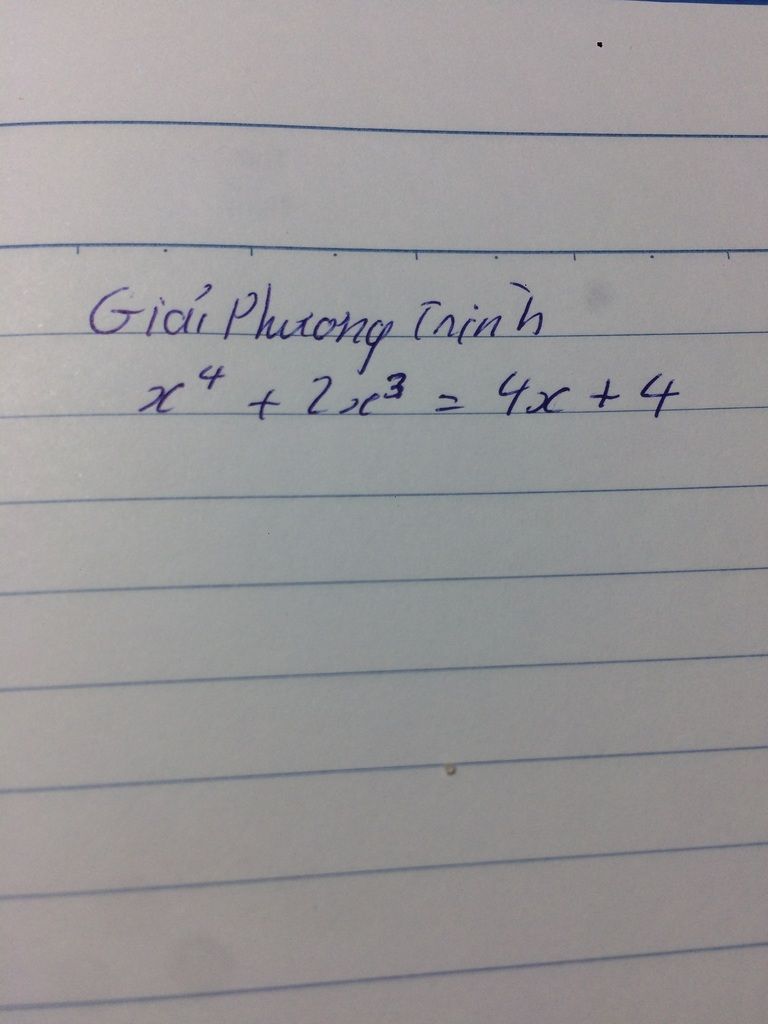 Giải Phương Trình
x⁴ + 2x³ = 4x + 4